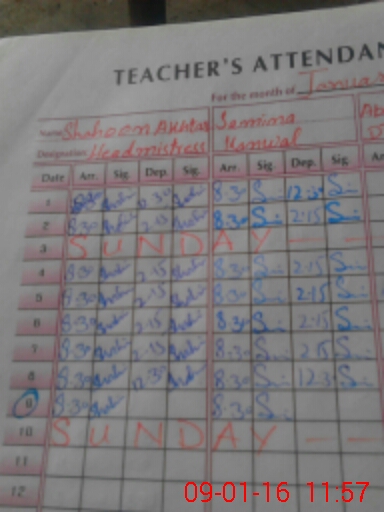 TEACHER'S ATTENDAN
For the month of Januar
Name Shaheen Akhtar Samina
Designation Headmistress
Date Arr. Sig. Dep. Sig. Arr. Sig. Dep. Sig. Ar
1 8:30 12:30 8:30 12:30
2 8:30 2:15 8:30 2:15
3 SUNDAY — —
4 8:30 2:15 8:30 2:15
5 8:30 2:15 8:30 2:15
6 8:30 2:15 8:30 2:15
7 8:30 2:15 8:30 2:15
8 8:30 12:30 8:30 12:30
9 8:30 8:30
10 SUNDAY — —
11
12
09-01-16 11:57